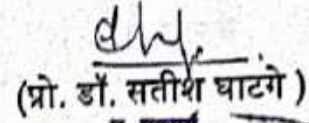 (प्रो. डॉ. सतीश घाटगे )